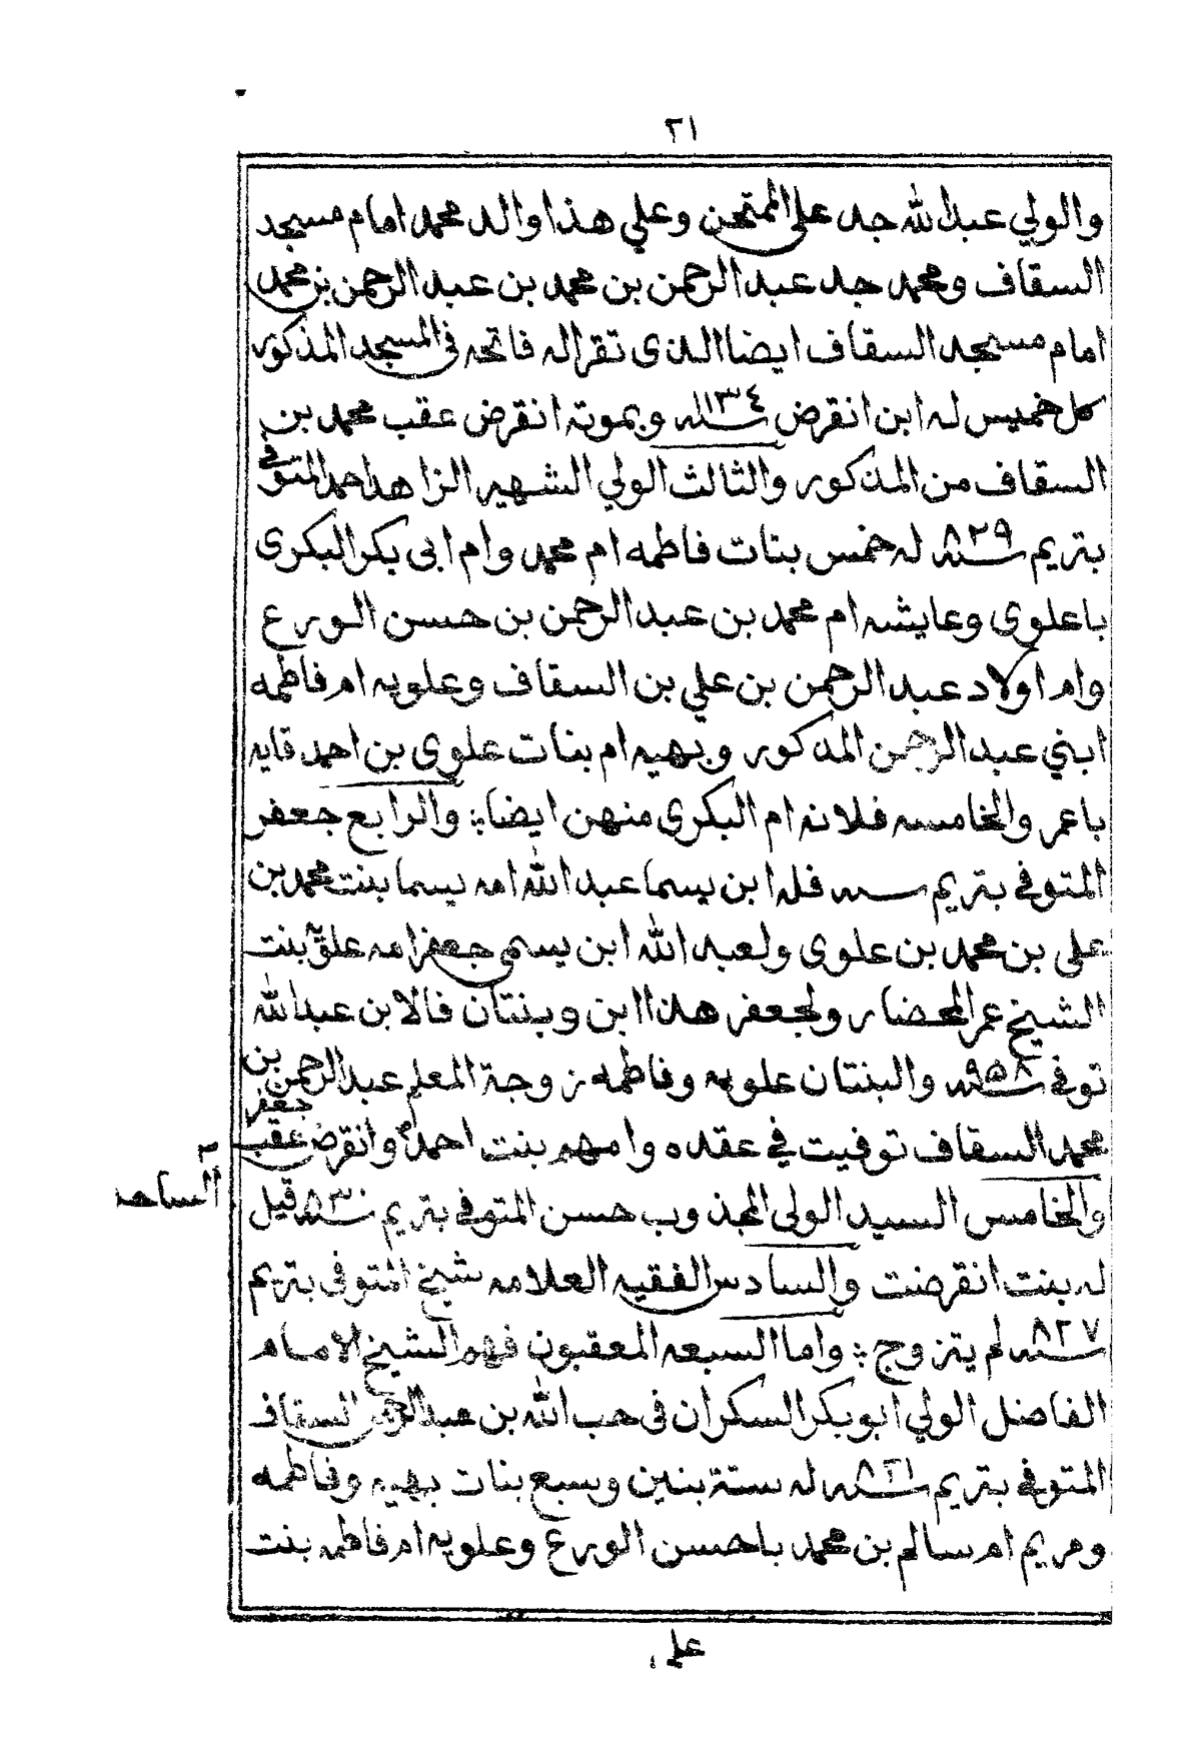 ٢١
والولي عبدالله جد على الممتحن وعلي هذا والد محمد امام مسجد
السقاف ومحمد جد عبدالرحمن بن محمد بن عبدالرحمن بن محمد
امام مسجد السقاف ايضا الذى تقرا له فاتحه فى المسجد المذكور
كل خميس له ابن انقرض سنه ١١٣٤ وبموته انقرض عقب محمد بن
السقاف من المذكور والثالث الولي الشهير الزاهد احمد المتوفي
بتريم سنه ٨٢٩ له خمس بنات فاطمه ام محمد وام ابى بكر البكرى
باعلوى وعايشه ام محمد بن عبدالرحمن بن حسن الورع
وام اولاد عبدالرحمن بن علي بن السقاف وعلويه ام فاطمه
ابني عبدالرحمن المذكور وبهيه ام بنات علوى بن احمد قايه
باعمر والخامسه فلانه ام البكري منهن ايضا؛ والرابع جعفر
المتوفي بتريم سنه فله ابن يسما عبدالله امه يسما بنت محمد بن
على بن محمد بن علوى ولعبد الله ابن يسمى جعفر امه علويه بنت
الشيخ عمر المحضار ولجعفر هذا ابن وبنتان فالابن عبدالله
توفي سنه ٩٥٨ والبنتان علويه وفاطمه زوجة المعلم عبدالرحمن بن
محمد السقاف توفيت في عقده وامهم بنت احمد وانقرض عقب جعفر
والخامس السيد الولى المجذوب حسن المتوفي بتريم سنه ٨٣٠ قيل
له بنت انقرضت والسادس الفقيه العلامه شيخ المتوفى بتريم
سنه ٨٢٧ لم يتزوج؛ واما السبعه المعقبون فهم الشيخ الامام
الفاضل الولي ابوبكر السكران فى حب الله بن عبدالرحمن السقاف
المتوفي بتريم سنه ٨٢١ له ستة بنين وسبع بنات بهيه وفاطمه
ومريم ام سالم بن محمد باحسن الورع وعلويه ام فاطمه بنت
على